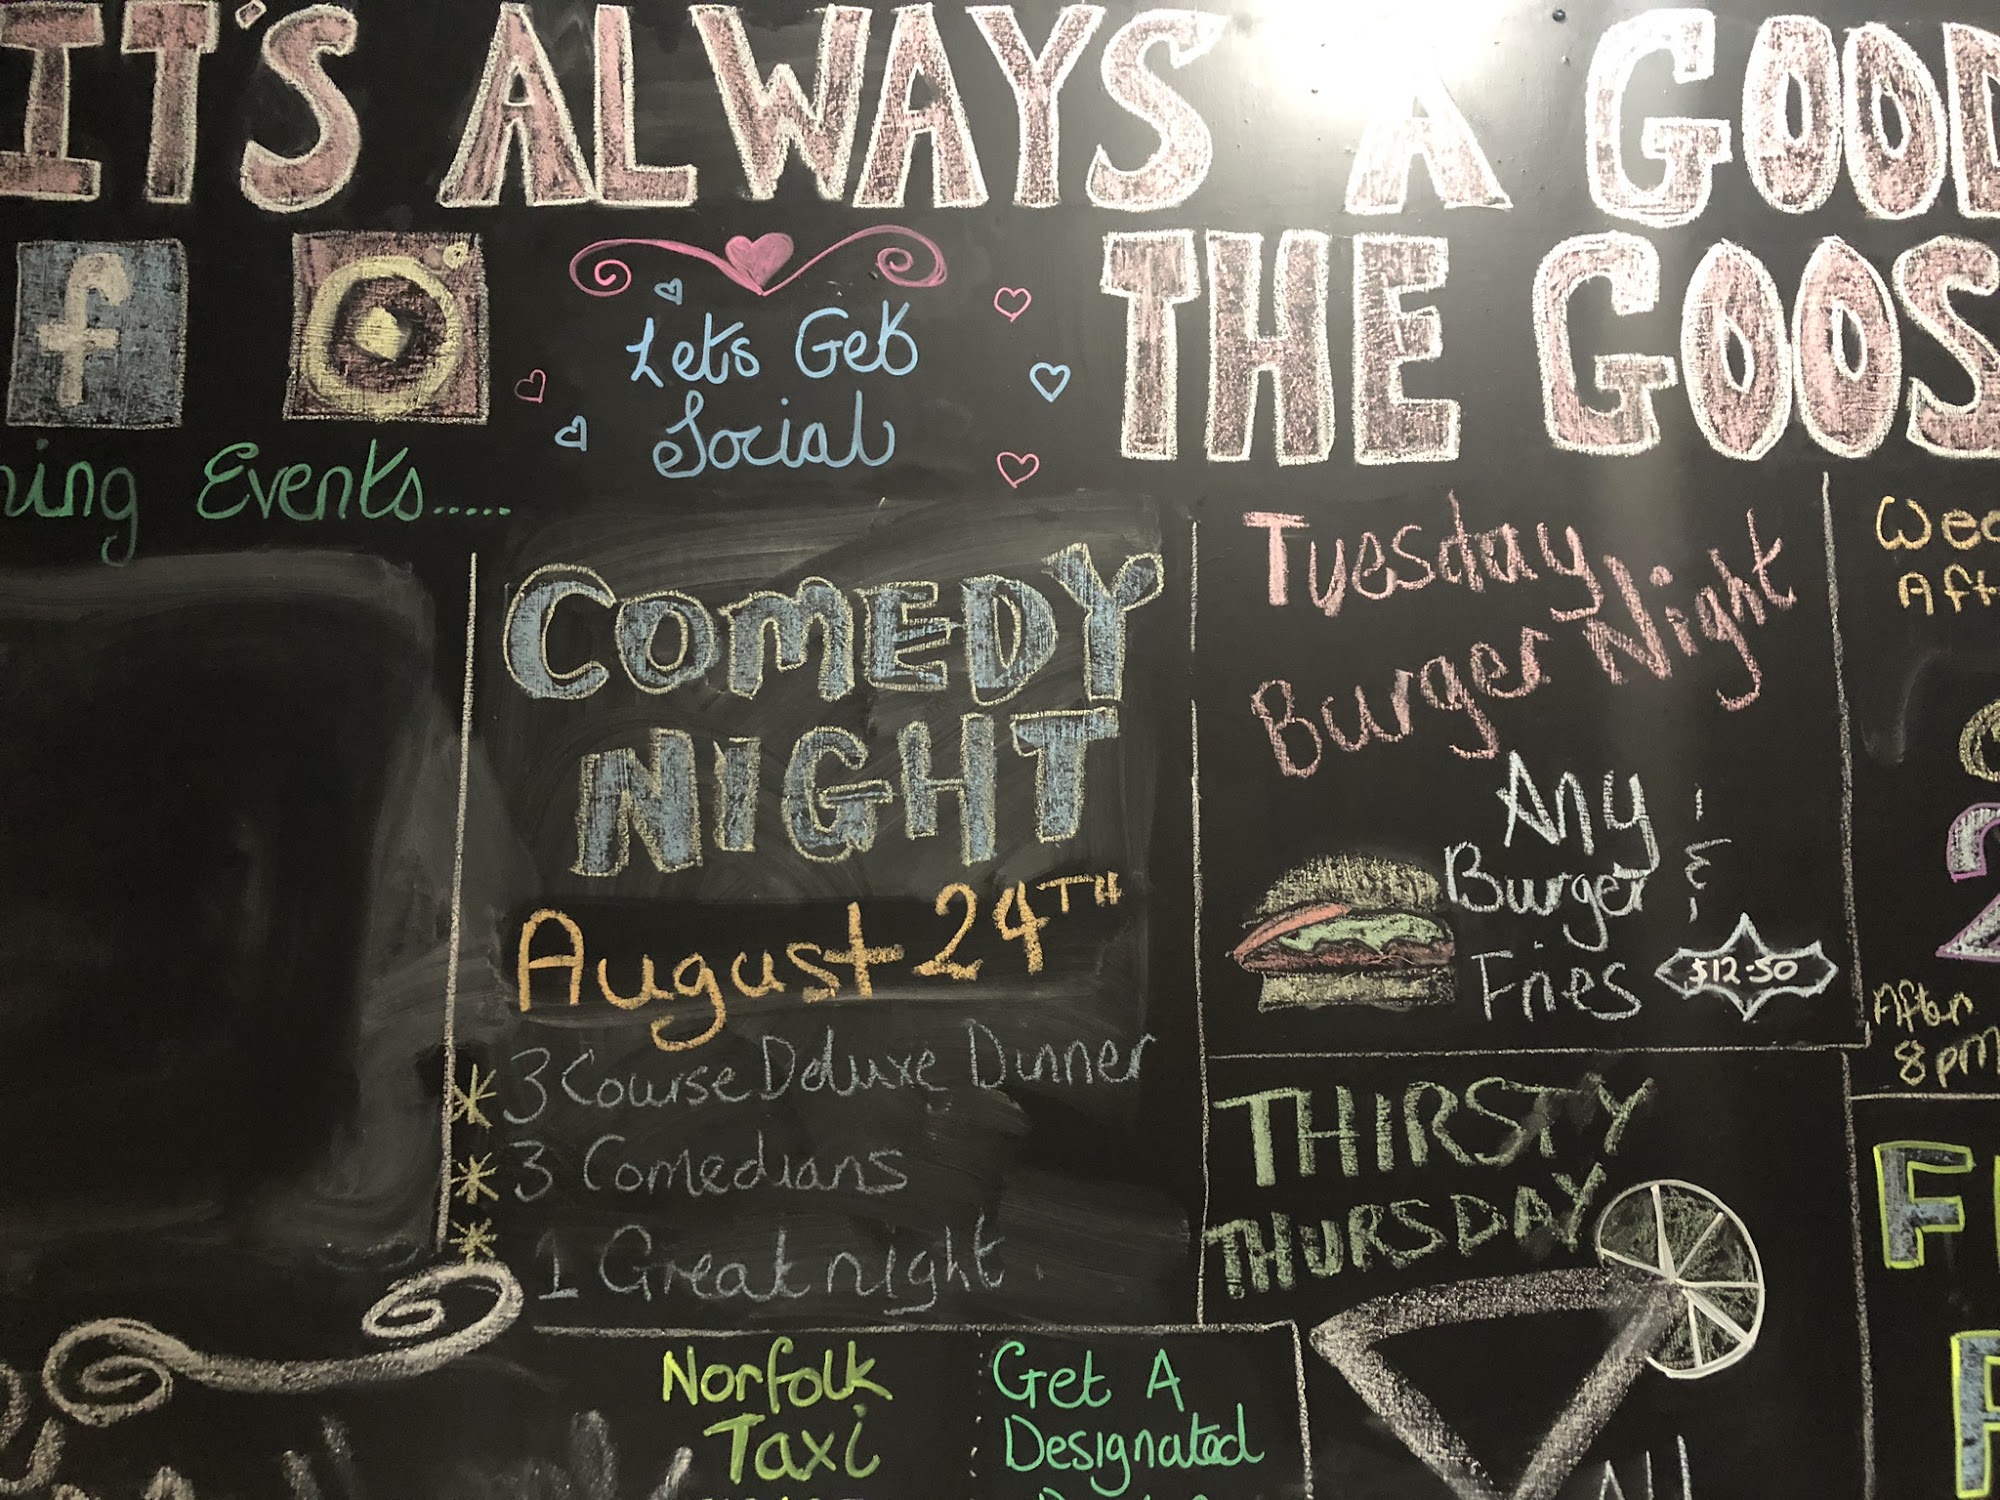 IT'S ALWAYS A GOOD
THE GOOS
f
Lets Get
Social
ning Events.....
COMEDY
NIGHT
August 24TH
3 Course Deluxe Dinner
3 Comedians
1 Great night
Norfolk
Taxi
Get A
Designated
Tuesday
Burger Night
Any
Burger &
Fries $12.50
THIRSTY
THURSDAY
All
Wed
Aft
2
After
8pm
F